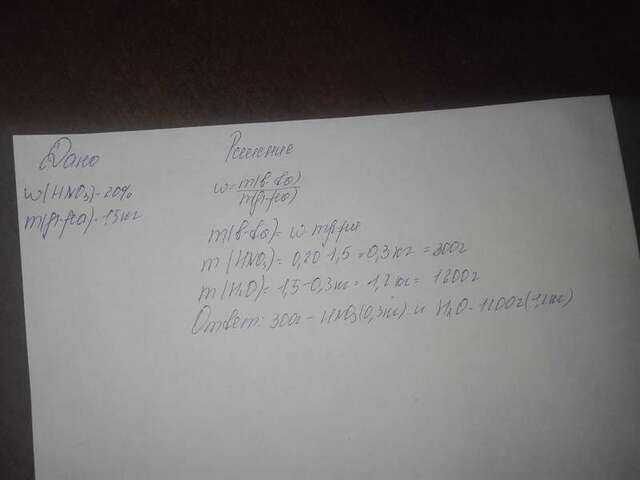 Дано
Решение
w(HNO3)-20%
m(р-ра)-1,5кг
w=m(в-ва)
m(р-ра)
m(в-ва)= w·mр-ра
m(HNO3)= 0,20·1,5=0,3кг=300г
m(H2O)=1,5-0,3кг=1,2кг=1200г
Ответ: 300г-HNO3(0,3кг) и H2O-1200г(1,2кг)